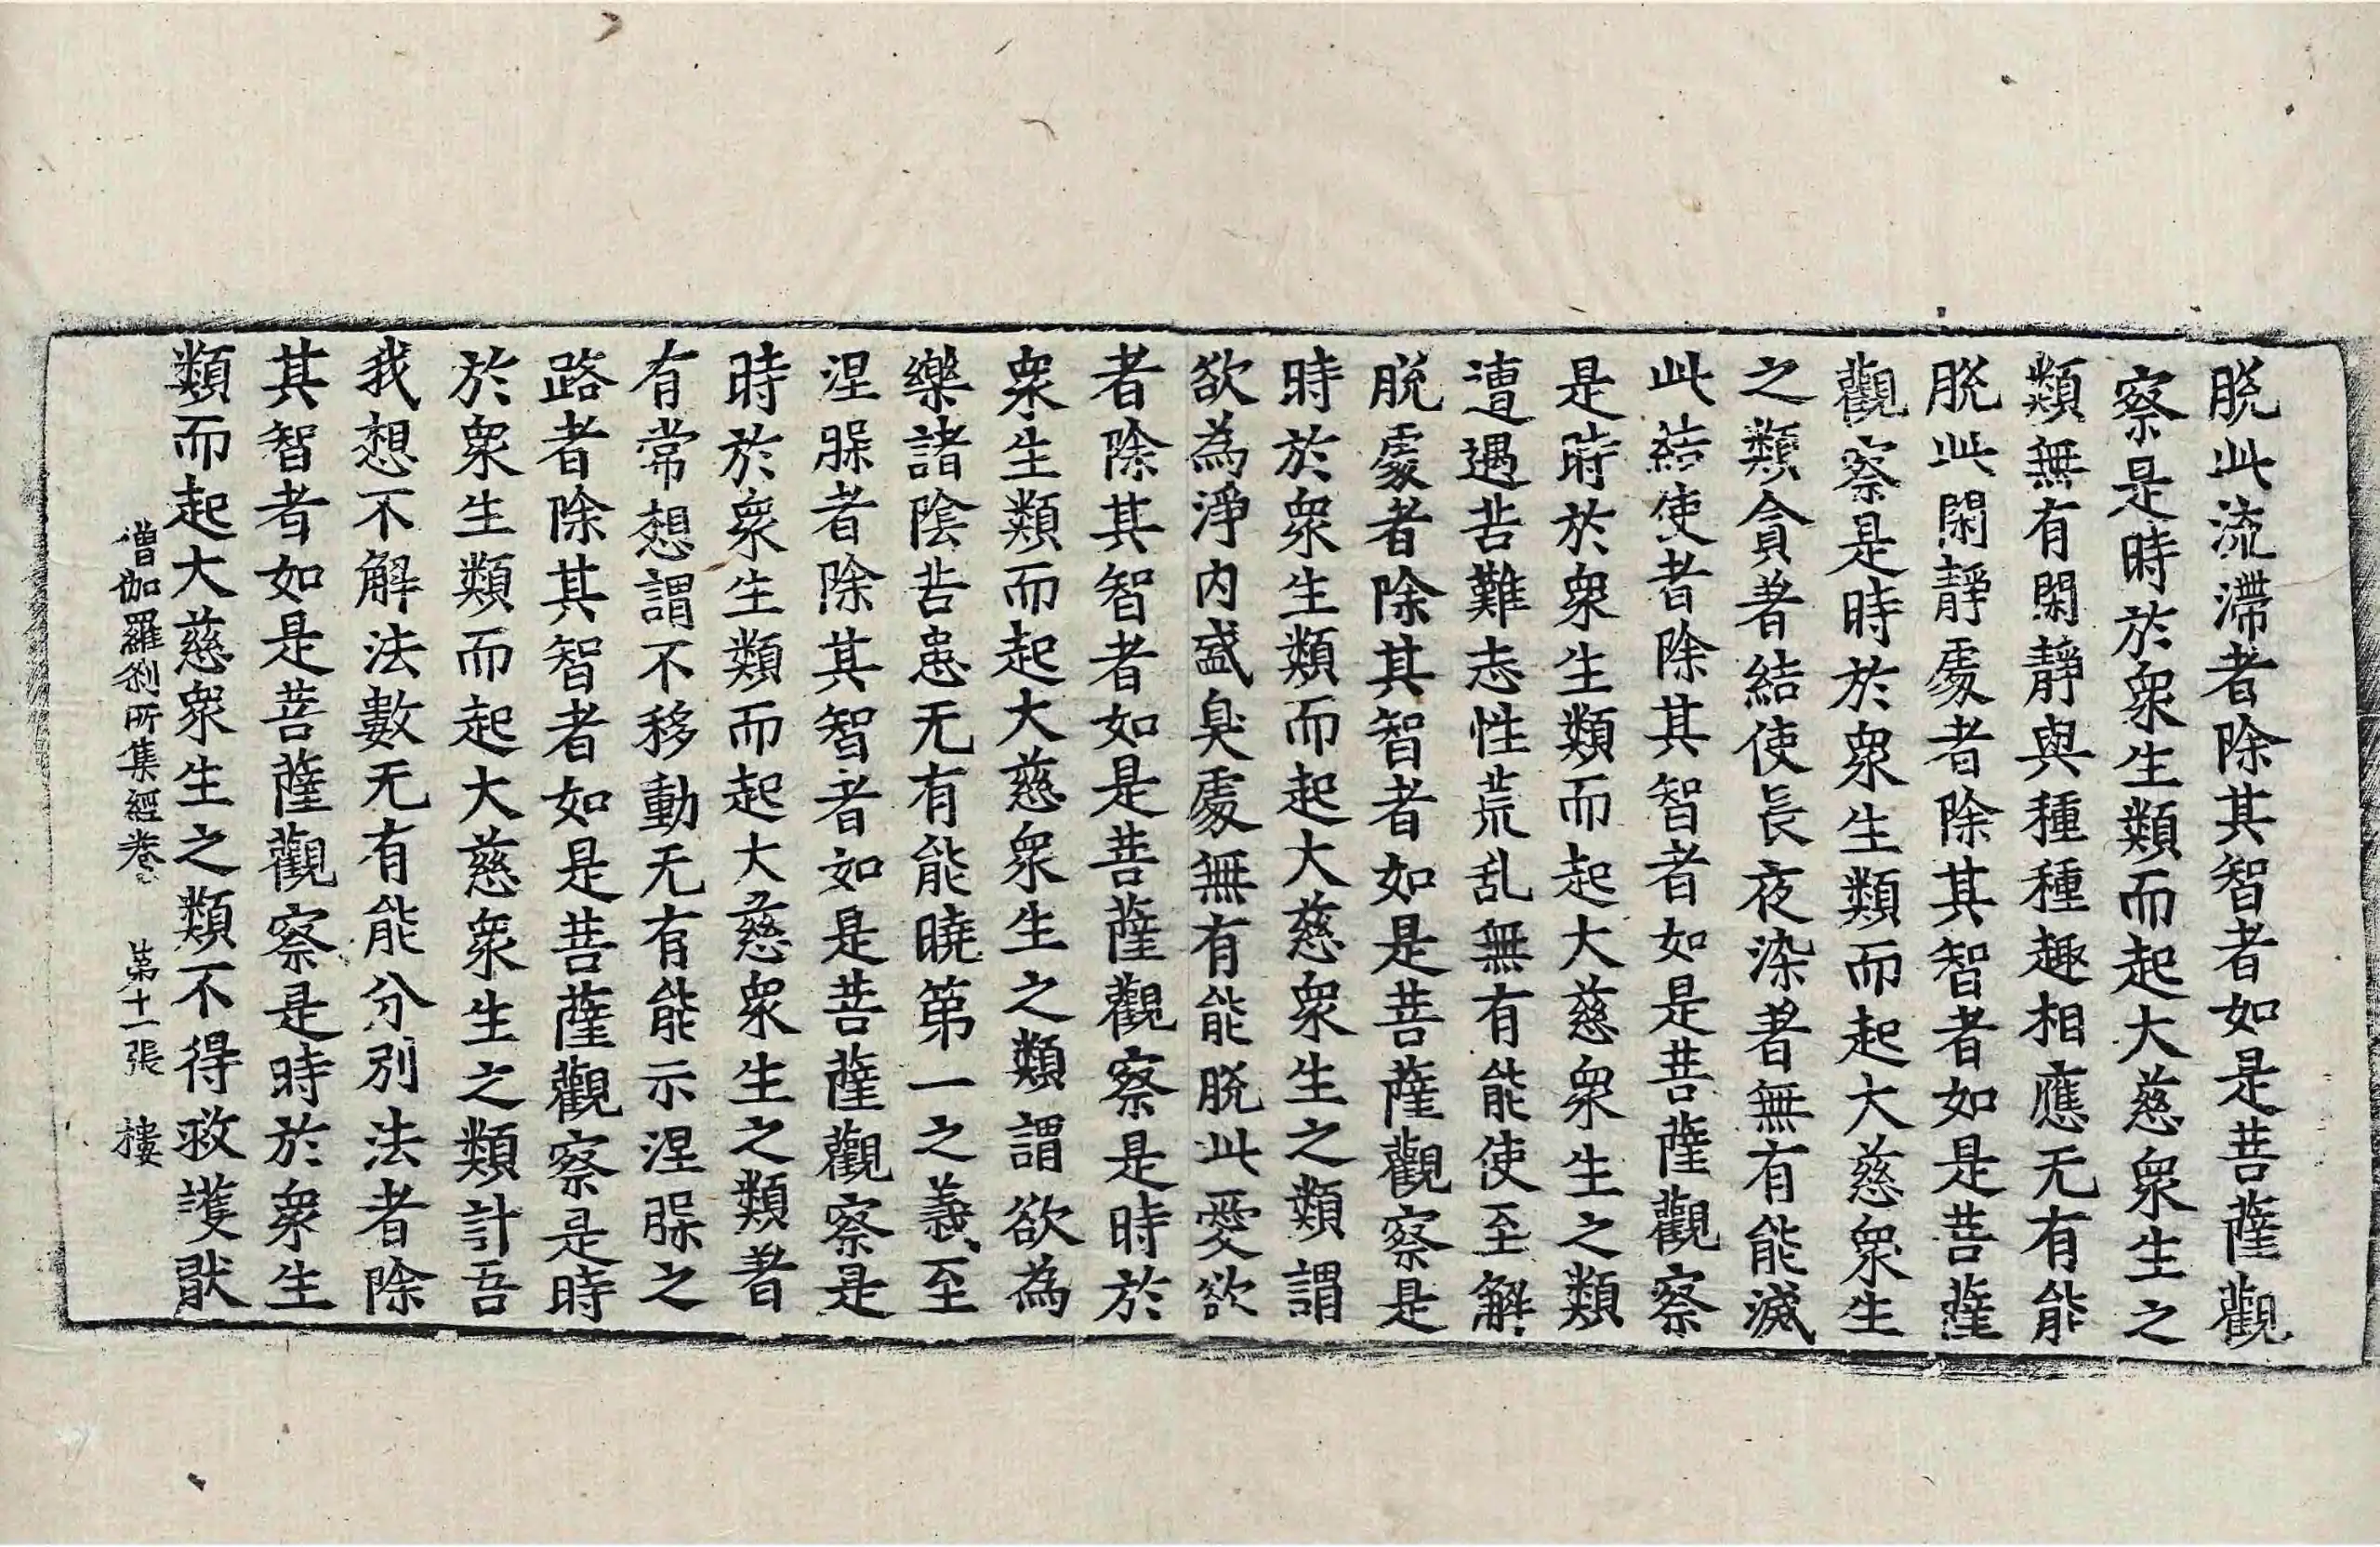 脫此流滯者除其智者如是菩薩觀
察是時於衆生類而起大慈衆生之
類無有閑靜與種種趣相應无有能
脫此閑靜處者除其智者如是菩薩
觀察是時於衆生類而起大慈衆生
之類貪著結使長夜染著無有能滅
此結使者除其智者如是菩薩觀察
是時於衆生類而起大慈衆生之類
遭遇苦難志性荒乱無有能使至解
脫處者除其智者如是菩薩觀察是
時於衆生類而起大慈衆生之類謂
欲為淨內盛臭處無有能脫此愛欲
者除其智者如是菩薩觀察是時於
衆生類而起大慈衆生之類謂欲為
樂諸陰苦患无有能曉第一之義至
涅槃者除其智者如是菩薩觀察是
時於衆生類而起大慈衆生之類著
有常想謂不移動无有能示涅槃之
路者除其智者如是菩薩觀察是時
於衆生類而起大慈衆生之類計吾
我想不解法數无有能分別法者除
其智者如是菩薩觀察是時於衆生
類而起大慈衆生之類不得救護猒
僧伽羅剎所集經卷上 第十一張 樓